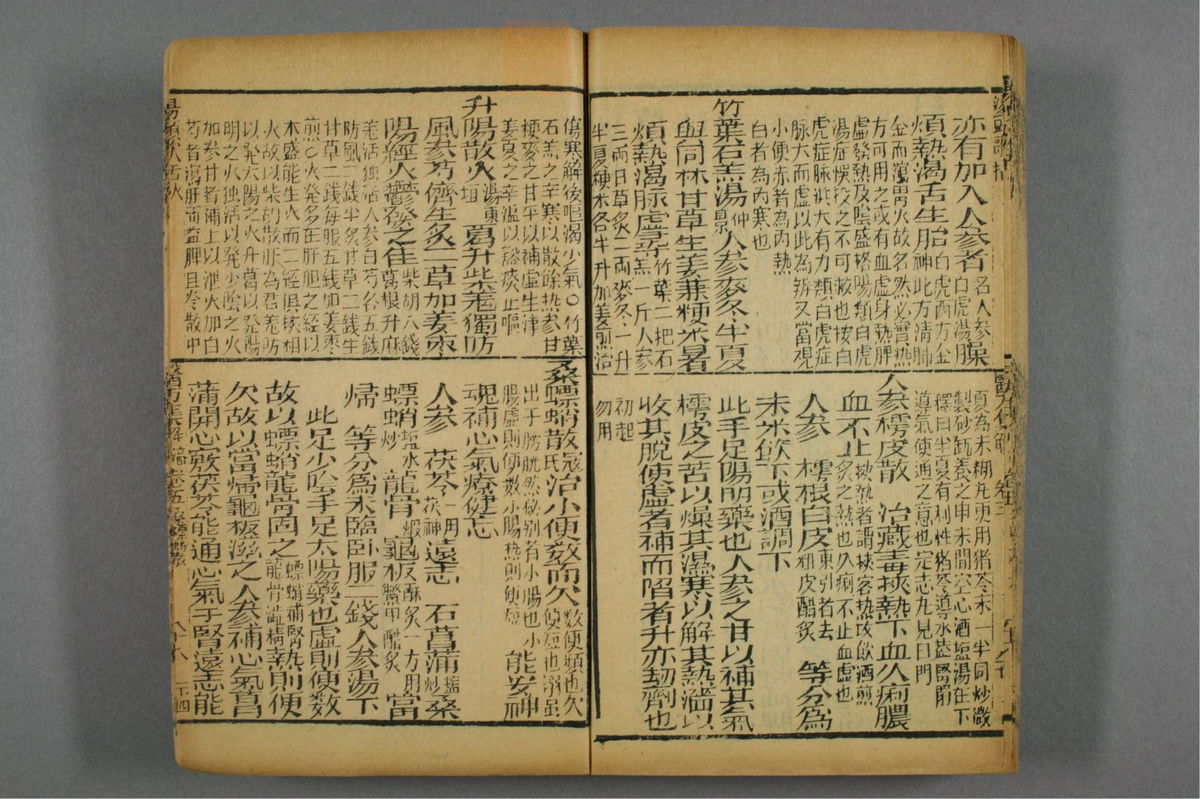 亦有加入人參者名人參白虎湯燥
煩熱渴舌生胎白虎西方金神此方清肺
金而瀉胃火故名然必實熱
方可用之或有血虛身熱脾
虛發熱及陰盛格陽類白虎
湯症悞投之不可救也按白
虎症脉洪大有力類白虎症
脉大而虛以此為辨又當覌
小便赤者為內熱
白者為內寒也
竹葉石羔湯仲景人參麥冬半夏
與同林甘草生姜兼粳米暑
煩熱渴脉虛尋竹葉二把石羔一斤人參
三兩甘草炙二兩麥冬一升
半夏粳米各半升加姜煎治
夏為末糊丸更用猪苓末一半同炒微
製砂缸養之申未間空心酒塩湯任下
釋曰半夏有利性猪苓導水盖腎閉
導氣使通之意也定志丸見曰門
人參樗皮散 治藏毒挾熱下血久痢膿
血不止挾熱者謂挾客熱攻飲酒煎炙之熱也久痢不止血虛也
人參 樗根白皮東引者去粗皮醋炙 等分為
末米飲下或酒調下
此手足陽明藥也人參之甘以補其氣
樗皮之苦以燥其濕寒以解其熱濇以
收其脫使虛者補而陷者升亦刼劑也
初起
勿用
傷寒解後嘔渴少氣○竹葉
石羔之辛寒以散餘熱參甘
粳麥之甘平以補虛生津
姜夏之辛溫以豁痰止嘔
升陽散火湯東垣葛升柴羌獨防
風參芍儕生炙二草加姜枣
陽經火鬱發之佳柴胡八錢葛根升麻
羌活獨活人參白芍各五錢
防風二錢半炙甘草三錢生
甘草二錢每服五錢加姜枣
煎○火發多在肝胆之經以
木盛能生火而二經俱挾相
火故以柴胡散肝為君羌防
以發太陽之火升葛以發陽
明之火獨活以發少陰之火
加參甘者補土以泄火加白
芍者瀉肝而益脾且參散中
桑螵蛸散寇氏治小便數而欠數便頻也欠便短也溺虽
出于膀胱然泌別者小腸也小
腸虛則便數小腸熱則便短 能安神
魂補心氣療健忘
人參 茯苓一用茯神遠志 石菖蒲塩炒桑
螵蛸塩水炒 龍骨煅 龜板酥炙一方用鱉甲醋炙 當
歸 等分爲末臨卧服二錢人參湯下
此足少阴手足太陽藥也虛則便數
故以螵蛸龍骨固之螵蛸補腎龍骨澁精熱則便
欠故以當歸龜板滋之人參補心氣菖
蒲開心竅茯苓能通心氣于腎遠志能